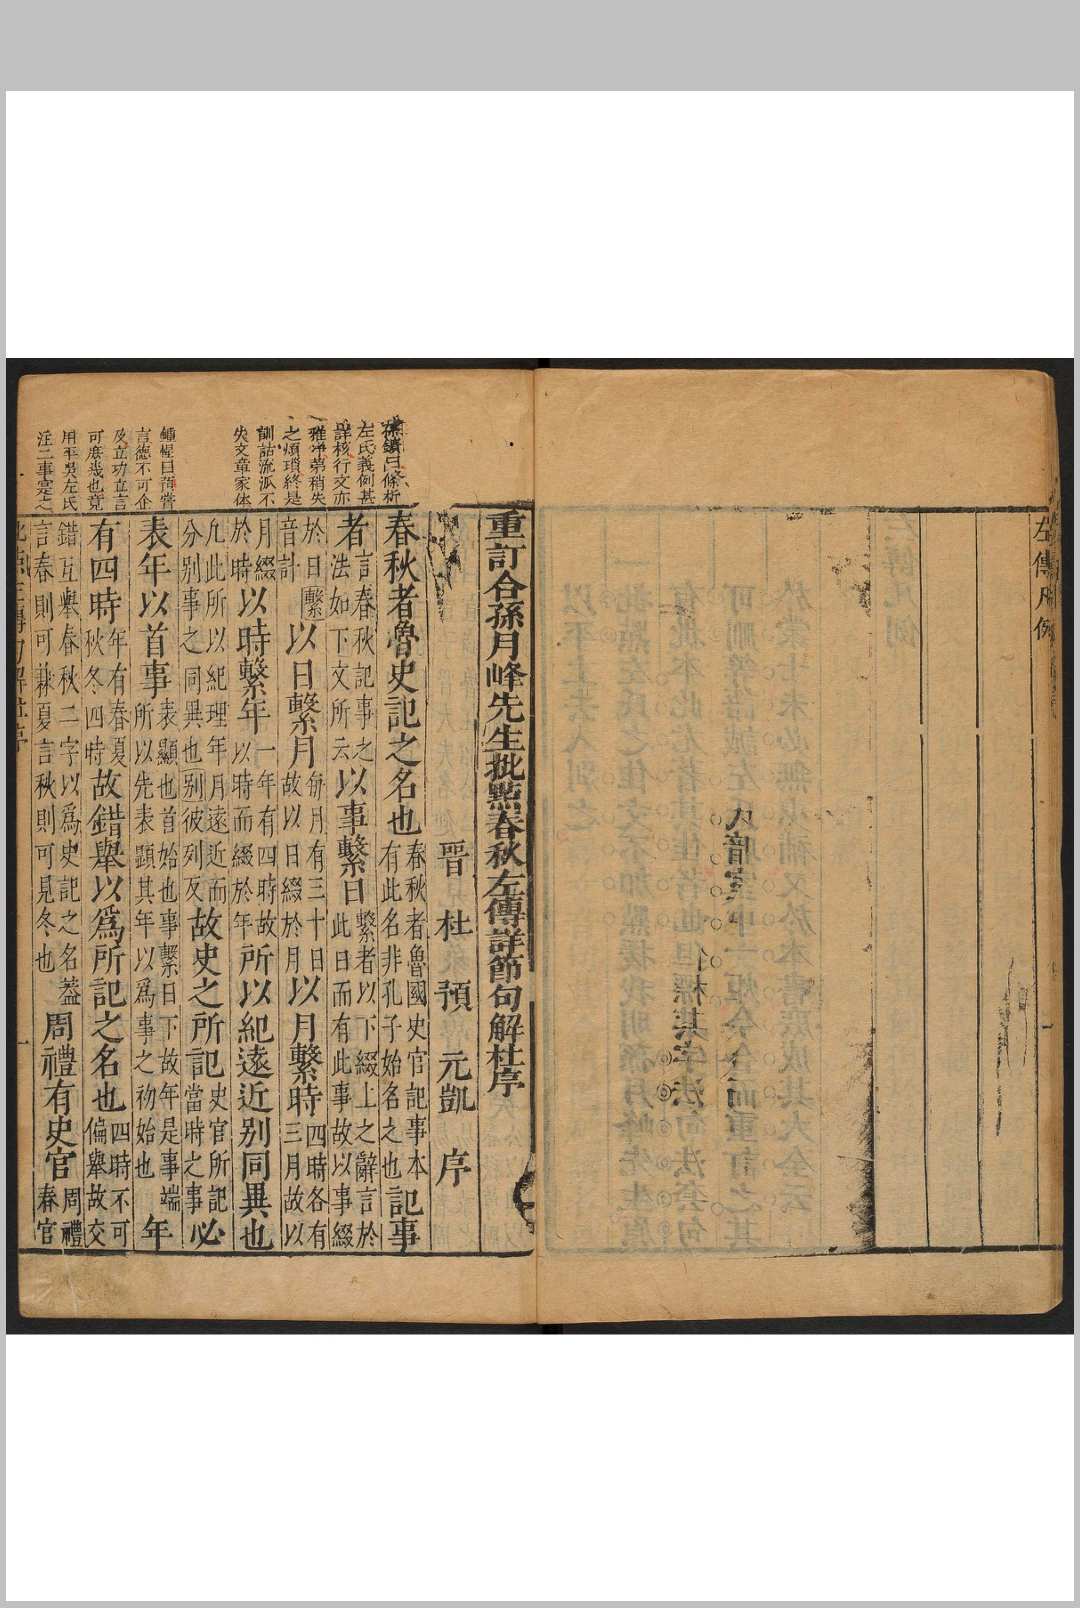 左傳凡例
重訂合孫月峰先生批點春秋左傳詳節句解杜序
晉杜預元凱序
春秋者魯史記之名也春秋者魯國史官記事本有此名非孔子始名之也記事
者言春秋記事之法如下文所云以事繫日繫者以下綴上之辭言於此日而有此事故以事綴
於日音計以日繫月每月有三十日故以日綴於月以月繫時四時各有三月故以
月綴於時以時繫年一年有四時故以時而綴於年所以紀遠近别同異也
凡此所以紀理年月遠近而分别事之同異也别彼列反故史之所記史官所記當時之事必
表年以首事表顯也首始也事繫日下故年是事端所以先表顯其年以爲事之初始也年
有四時年有春夏秋冬四時故錯舉以爲所記之名也四時不可偏舉故交
錯互舉春秋二字以爲史記之名蓋言春則可兼夏言秋則可見冬也周禮有史官周禮春官
左氏義例甚
詳核行文亦
雅淨第稍失
之煩瑣終是
訓詁流派不
失文章家体
鍾惺曰預嘗
言德不可企
及立功立言
可庶幾也竟
用平吳左氏
注二事寔之